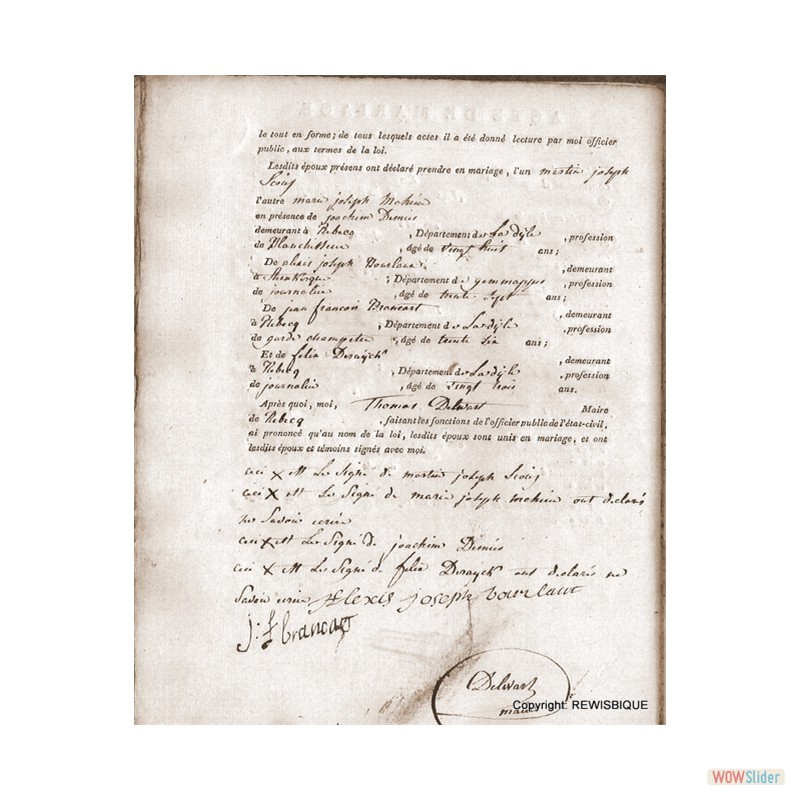 le tout en forme; de tous lesquels actes il a été donné lecture par moi officier
public, aux termes de la loi.
Lesdits époux présens ont déclaré prendre en mariage, l'un martin joseph
l'autre marie joseph
en présence de joachim
demeurant à Rebecq , Département de La dyle , profession
de Blanchisseur , âgé de vingt huit ans;
De alexis joseph Vourlaut , demeurant
à Steenkerque ; Département de gemmappes , profession
de journalier , âgé de trente sept ans;
De jean francois Brancart , demeurant
à Rebecq , Département de La dyle , profession
de garde champetre , âgé de trente six ans;
Et de felix , demeurant
à Rebecq , Département de La dyle , profession
de journalier , âgé de vingt trois ans.
Après quoi, moi, Thomas Delwart Maire
de Rebecq , faisant les fonctions de l'officier public de l'état-civil,
ai prononcé qu'au nom de la loi, lesdits époux sont unis en mariage, et ont
lesdits époux et témoins signés avec moi.
ceci X est Le Signe de martin joseph
ceci X est Le Signe de marie joseph ont declarés
ne Savoir ecrire
ceci X est Le Signe de joachim
ceci X est Le Signe de felix ont declarés ne
Savoir ecrire Alexis joseph vourlaut
j: f brancart
Delwart
maire
Copyright: REWISBIQUE
WOWSlider